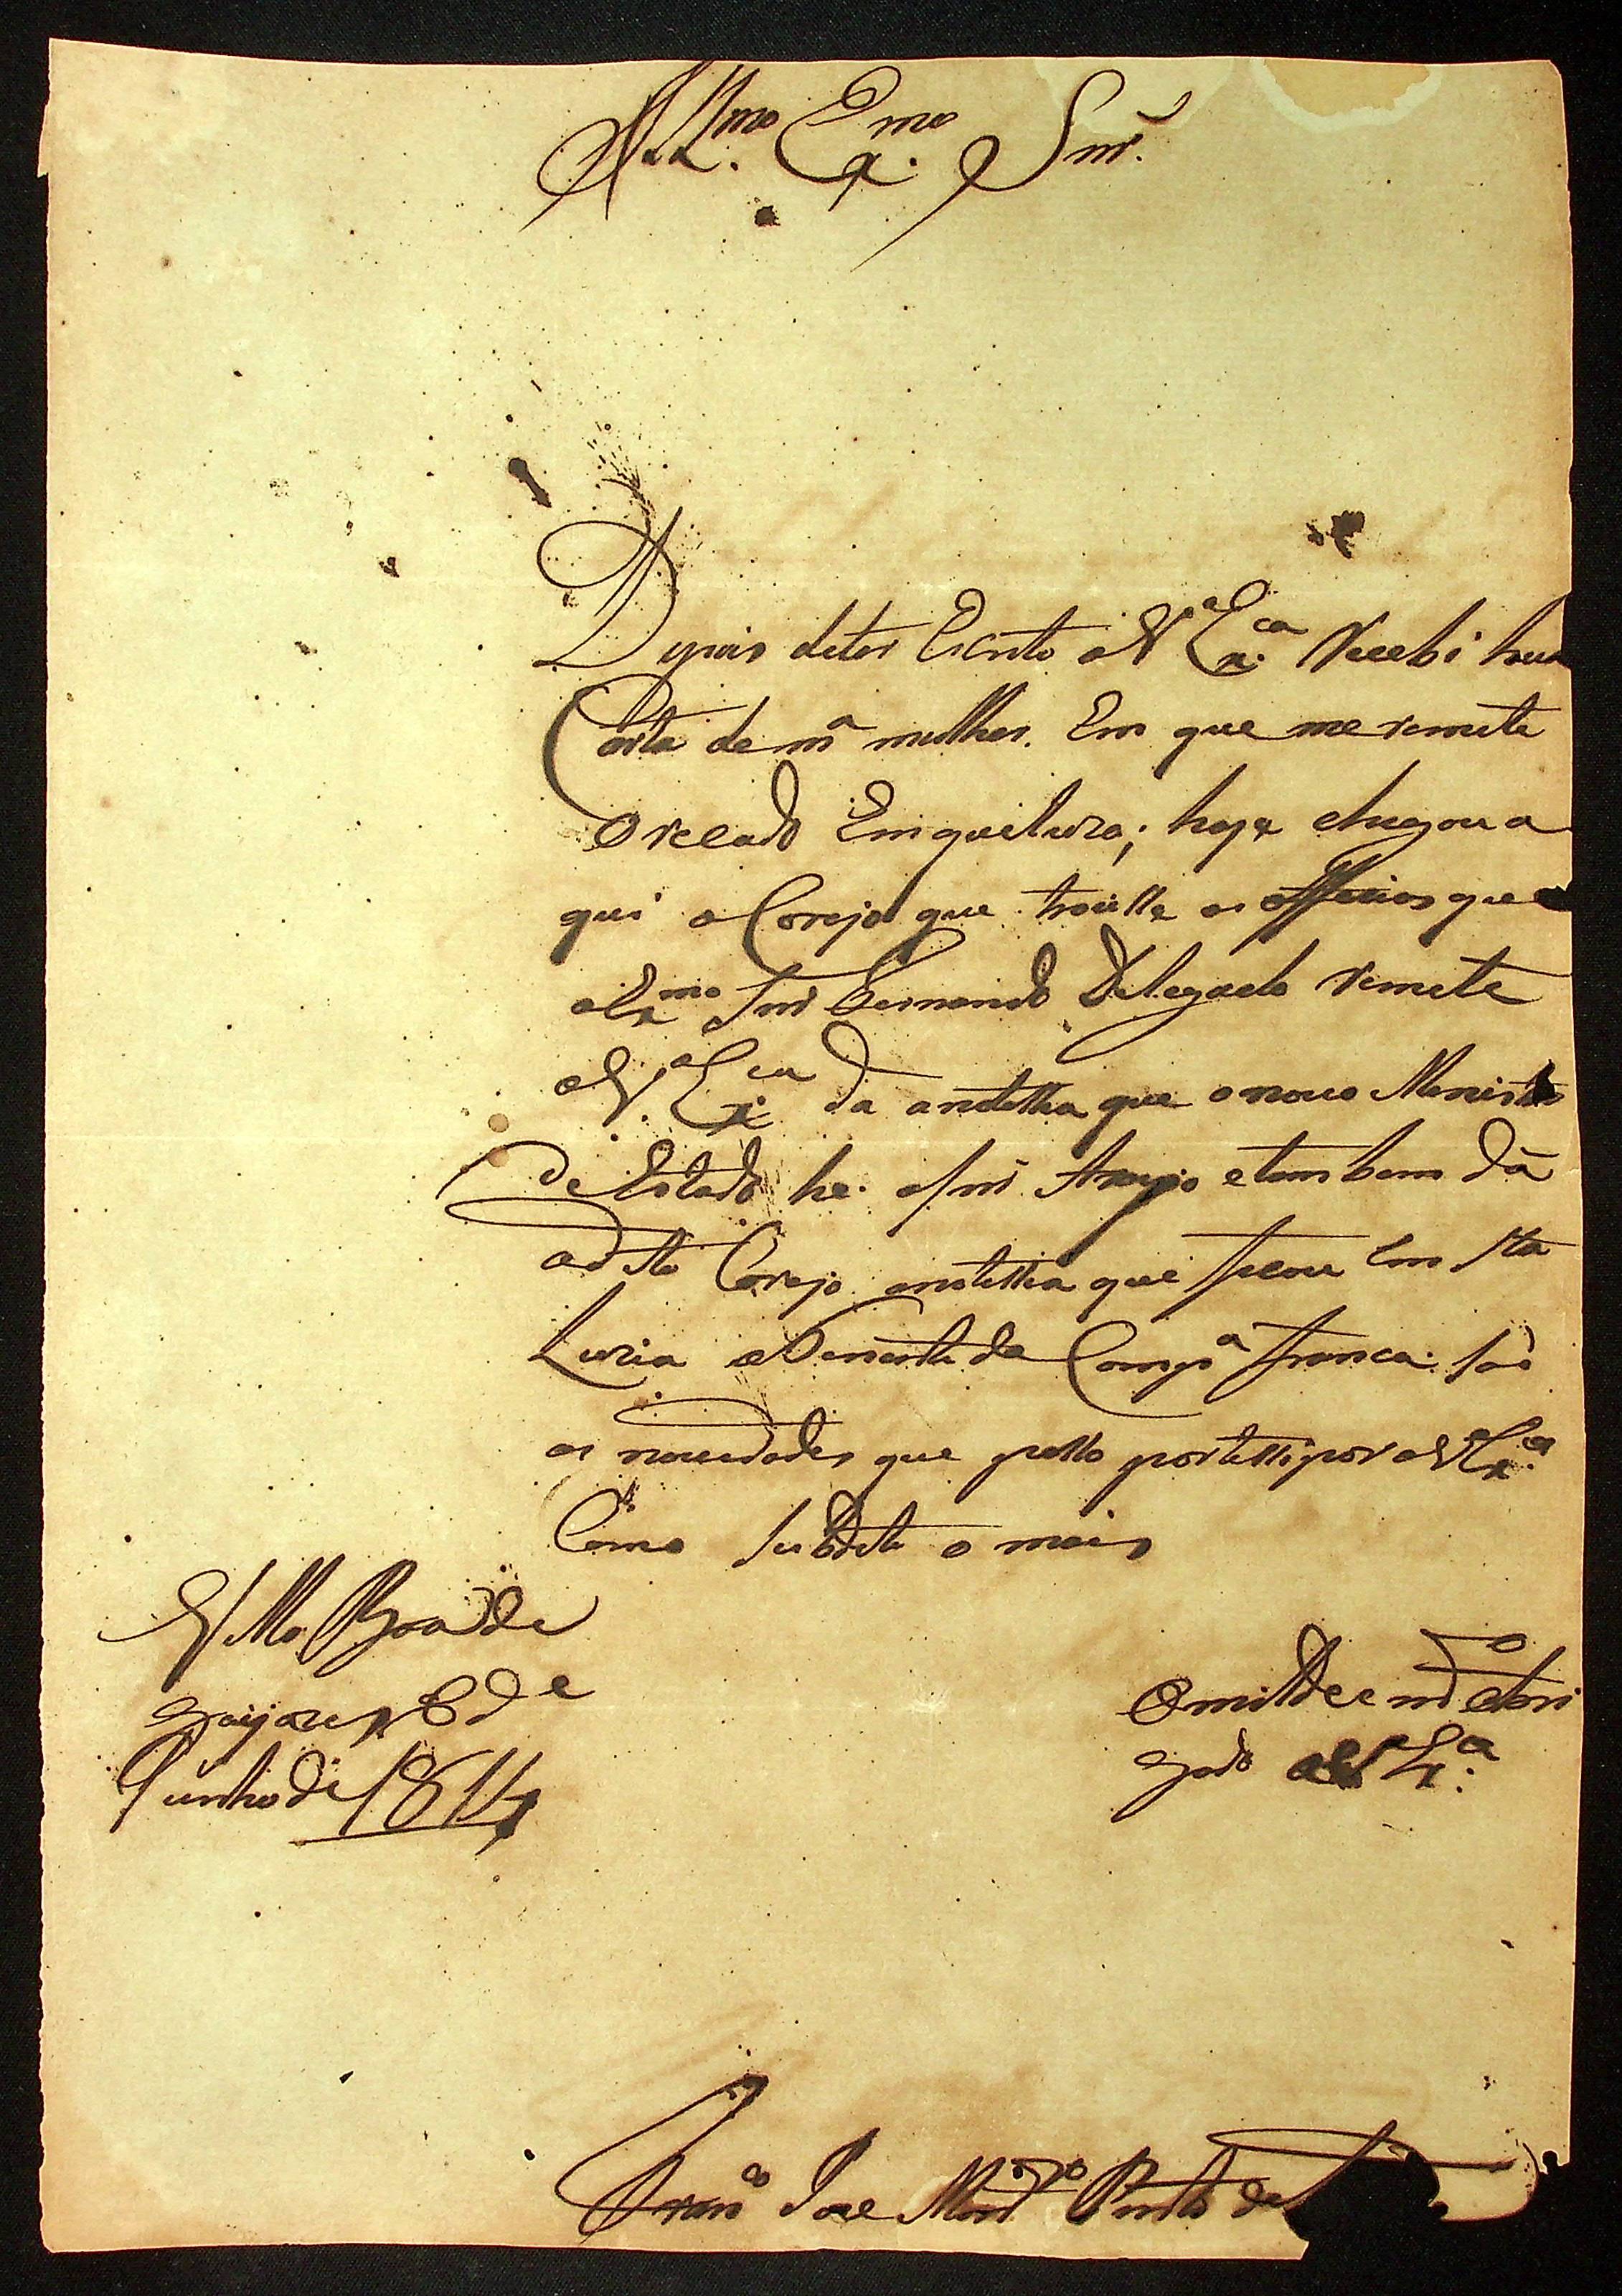 Illmo. Exmo. Snr.
Depois deter Escrito a V.ª Ex.ca Recebi hua
Carta de mª mulher. Em que me remete
O recado Em que
hoje chegou a
qui o Corejo que trousse os officios que
o Exmo Snr Fernando Delegado remete
a V.ª Ex.ca da a notissia que o novo Menistro
de Estado he o Snr Araujo e tambem dá
o d.to Corejo a notissia que ficou Em Sta
Luzia o Tenente da Compª franca. São
as novedades que posso portissipar a V.ª Ex.ª
Como Subdito o mais
V.ª Boa de
Goyazes 8 de
Junho de 1814
Omilde e m.to obri
gado a V.ª Ex.ª
Franco Joze Pinto de